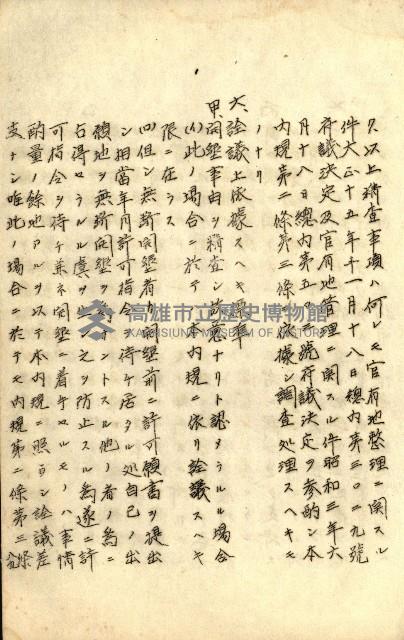 久以上精査事項ハ何レモ官有地整理ニ関スル
件大正十五年十一月十八日總内第三〇二九號
府議決定及官有地管理ニ関スル件昭和三年六
月十八日總内第五 號府議決定ヲ参酌シ本
内規第二條第三條 依據シ調査処理スヘキモ
ノナリ
六、詮議上依據スヘキ 準
甲、開墾事由ヲ精査シ ナリト認メラルル場合
(イ)此ノ場合ニ於テ 内規ニ依リ詮議スヘキ
限ニ在ラス
(ロ)但シ無断開墾者ノ 墾前ニ許可願書ヲ提出
シ相當年月許可指令ヲ待チ居タル処自己ノ出
願地ヲ無断開墾ヲ為サントスル他ノ者ノ為ニ
占得セラルル虞ヲ シ之ヲ防止スル為遂ニ許
可指令ヲ待チ兼ネ開墾ニ着手セルモノハ事情
酌量ノ餘地アルヲ以テ本内規ニ照ラシ詮議差
支ナシ唯此ノ場合ニ於テモ内規第二條第三條
高雄市立歷史博物館
KAOHSIUNG MUSEUM OF HISTORY